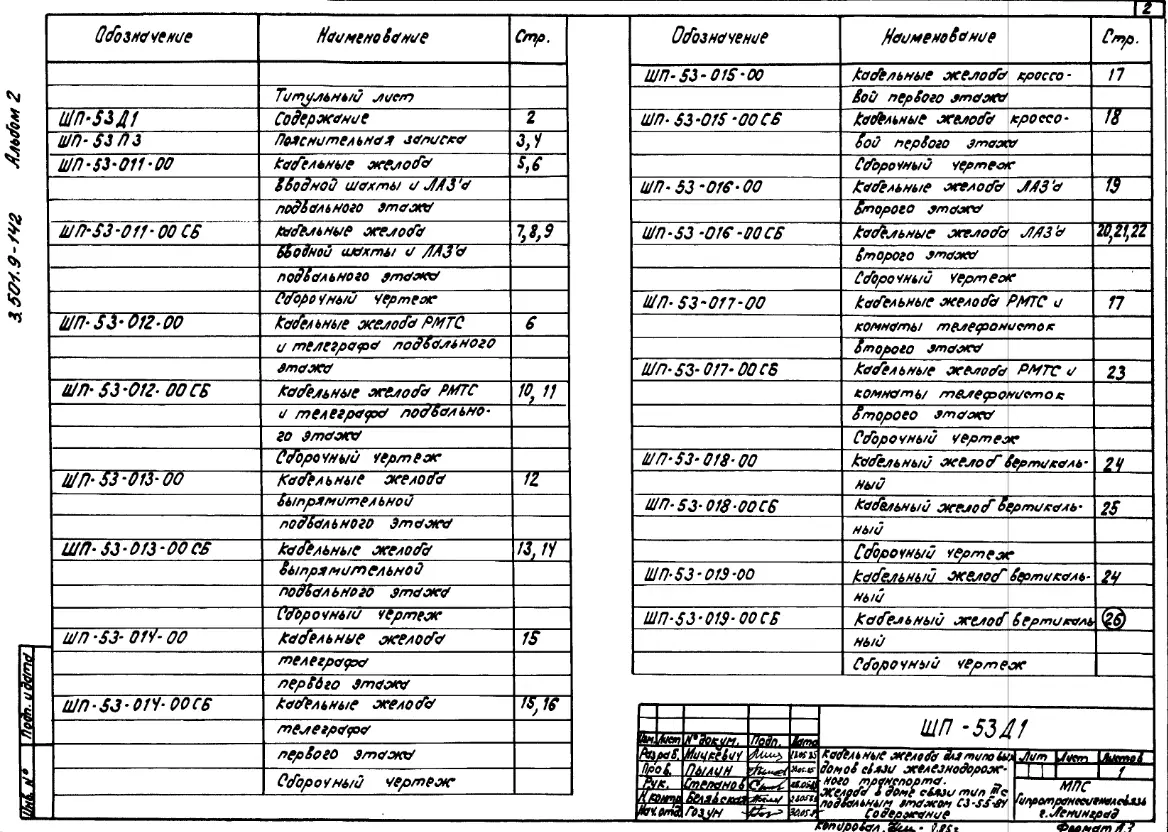 2
3.501.9-142 Альбом 2
Обозначение Наименование Стр.
Титульный лист
ШП-53Д1 Содержание 2
ШП-53ПЗ Пояснительная записка 3,4
ШП-53-011-00 Кабельные желоба 5,6
вводной шахты и ЛАЗ'а
подвального этажа
ШП-53-011-00СБ Кабельные желоба 7,8,9
вводной шахты и ЛАЗ'а
подвального этажа
Сборочный чертеж
ШП-53-012-00 Кабельные желоба РМТС 6
и телеграфа подвального
этажа
ШП-53-012-00СБ Кабельные желоба РМТС 10, 11
и телеграфа подвально-
го этажа
Сборочный чертеж
ШП-53-013-00 Кабельные желоба 12
выпрямительной
подвального этажа
ШП-53-013-00СБ Кабельные желоба 13,14
выпрямительной
подвального этажа
Сборочный чертеж
ШП-53-014-00 Кабельные желоба 15
телеграфа
первого этажа
ШП-53-014-00СБ Кабельные желоба 15,16
телеграфа
первого этажа
Сборочный чертеж
Обозначение Наименование Стр.
ШП-53-015-00 Кабельные желоба кроссо- 17
вой первого этажа
ШП-53-015-00СБ Кабельные желоба кроссо- 18
вой первого этажа
Сборочный чертеж
ШП-53-016-00 Кабельные желоба ЛАЗ'а 19
второго этажа
ШП-53-016-00СБ Кабельные желоба ЛАЗ'а 20,21,22
второго этажа
Сборочный чертеж
ШП-53-017-00 Кабельные желоба РМТС и 17
комнаты телефонисток
второго этажа
ШП-53-017-00СБ Кабельные желоба РМТС и 23
комнаты телефонисток
второго этажа
Сборочный чертеж
ШП-53-018-00 Кабельный желоб вертикаль- 24
ный
ШП-53-018-00СБ Кабельный желоб вертикаль- 25
ный
Сборочный чертеж
ШП-53-019-00 Кабельный желоб вертикаль- 24
ный
ШП-53-019-00СБ Кабельный желоб вертикаль 26
ный
Сборочный чертеж
Подп. и дата
Инв. №
ШП-53Д1
Изм. Лист № докум. Подп. Дата
Разраб. Мицкевич
Пров. Пылин
Рук. Степанов
Н.контр Белявская
Нач.отд Гозун 30.05.85
Кабельные желоба для типовых
домов связи железнодорож-
ного транспорта.
Желоба в доме связи тип IIIс
подвальным этажом СЗ-55-84
Содержание
Лит Лист Листов
1
МПС
Гипротранссигналсвязь
г. Ленинград
Копировал
Формат А3